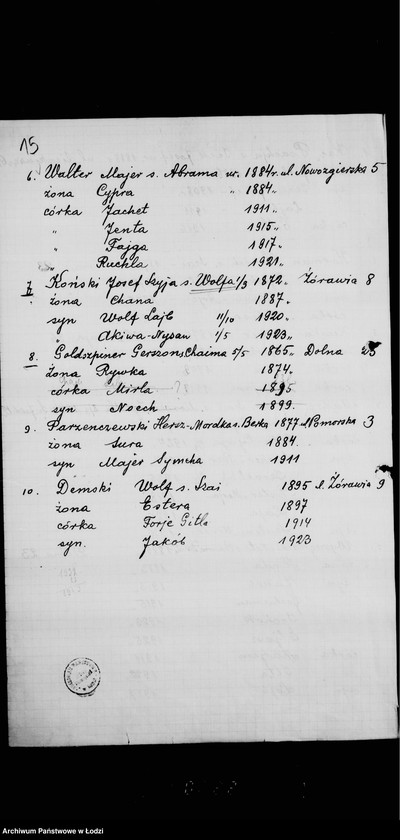 15
6. Walter Majer s. Abrama ur. 1884 r. ul. Nowozgierska 5
żona Cypra " 1884 "
córka Jachet 1911 "
" Jenta 1915 "
" Fajga 1917 "
" Ruchla 1921 "
7. Koński Josef Szyja s. Wolfa 1/3 1872 " Żórawia 8
żona Chana 1887 "
syn Wolf Lajb 11/10 1920 "
" Akiwa-Nysan 1/5 1923 "
8. Goldszpiner Gerszon s. Chaima 5/5 1865 " Dolna
żona Rywka 1874 "
córka Mirla 1895
syn Noech 1899
9. Parzenczewski Hersz-Mordka s. Berka 1877 Pomorska 3
żona Sura 1884
syn Majer Symcha 1911
10. Demski Wolf s. Szai 1895 ul. Żórawia 9
żona Estera 1897
córka Forje Gitla 1914
syn. Jakób 1923
Archiwum Państwowe w Łodzi